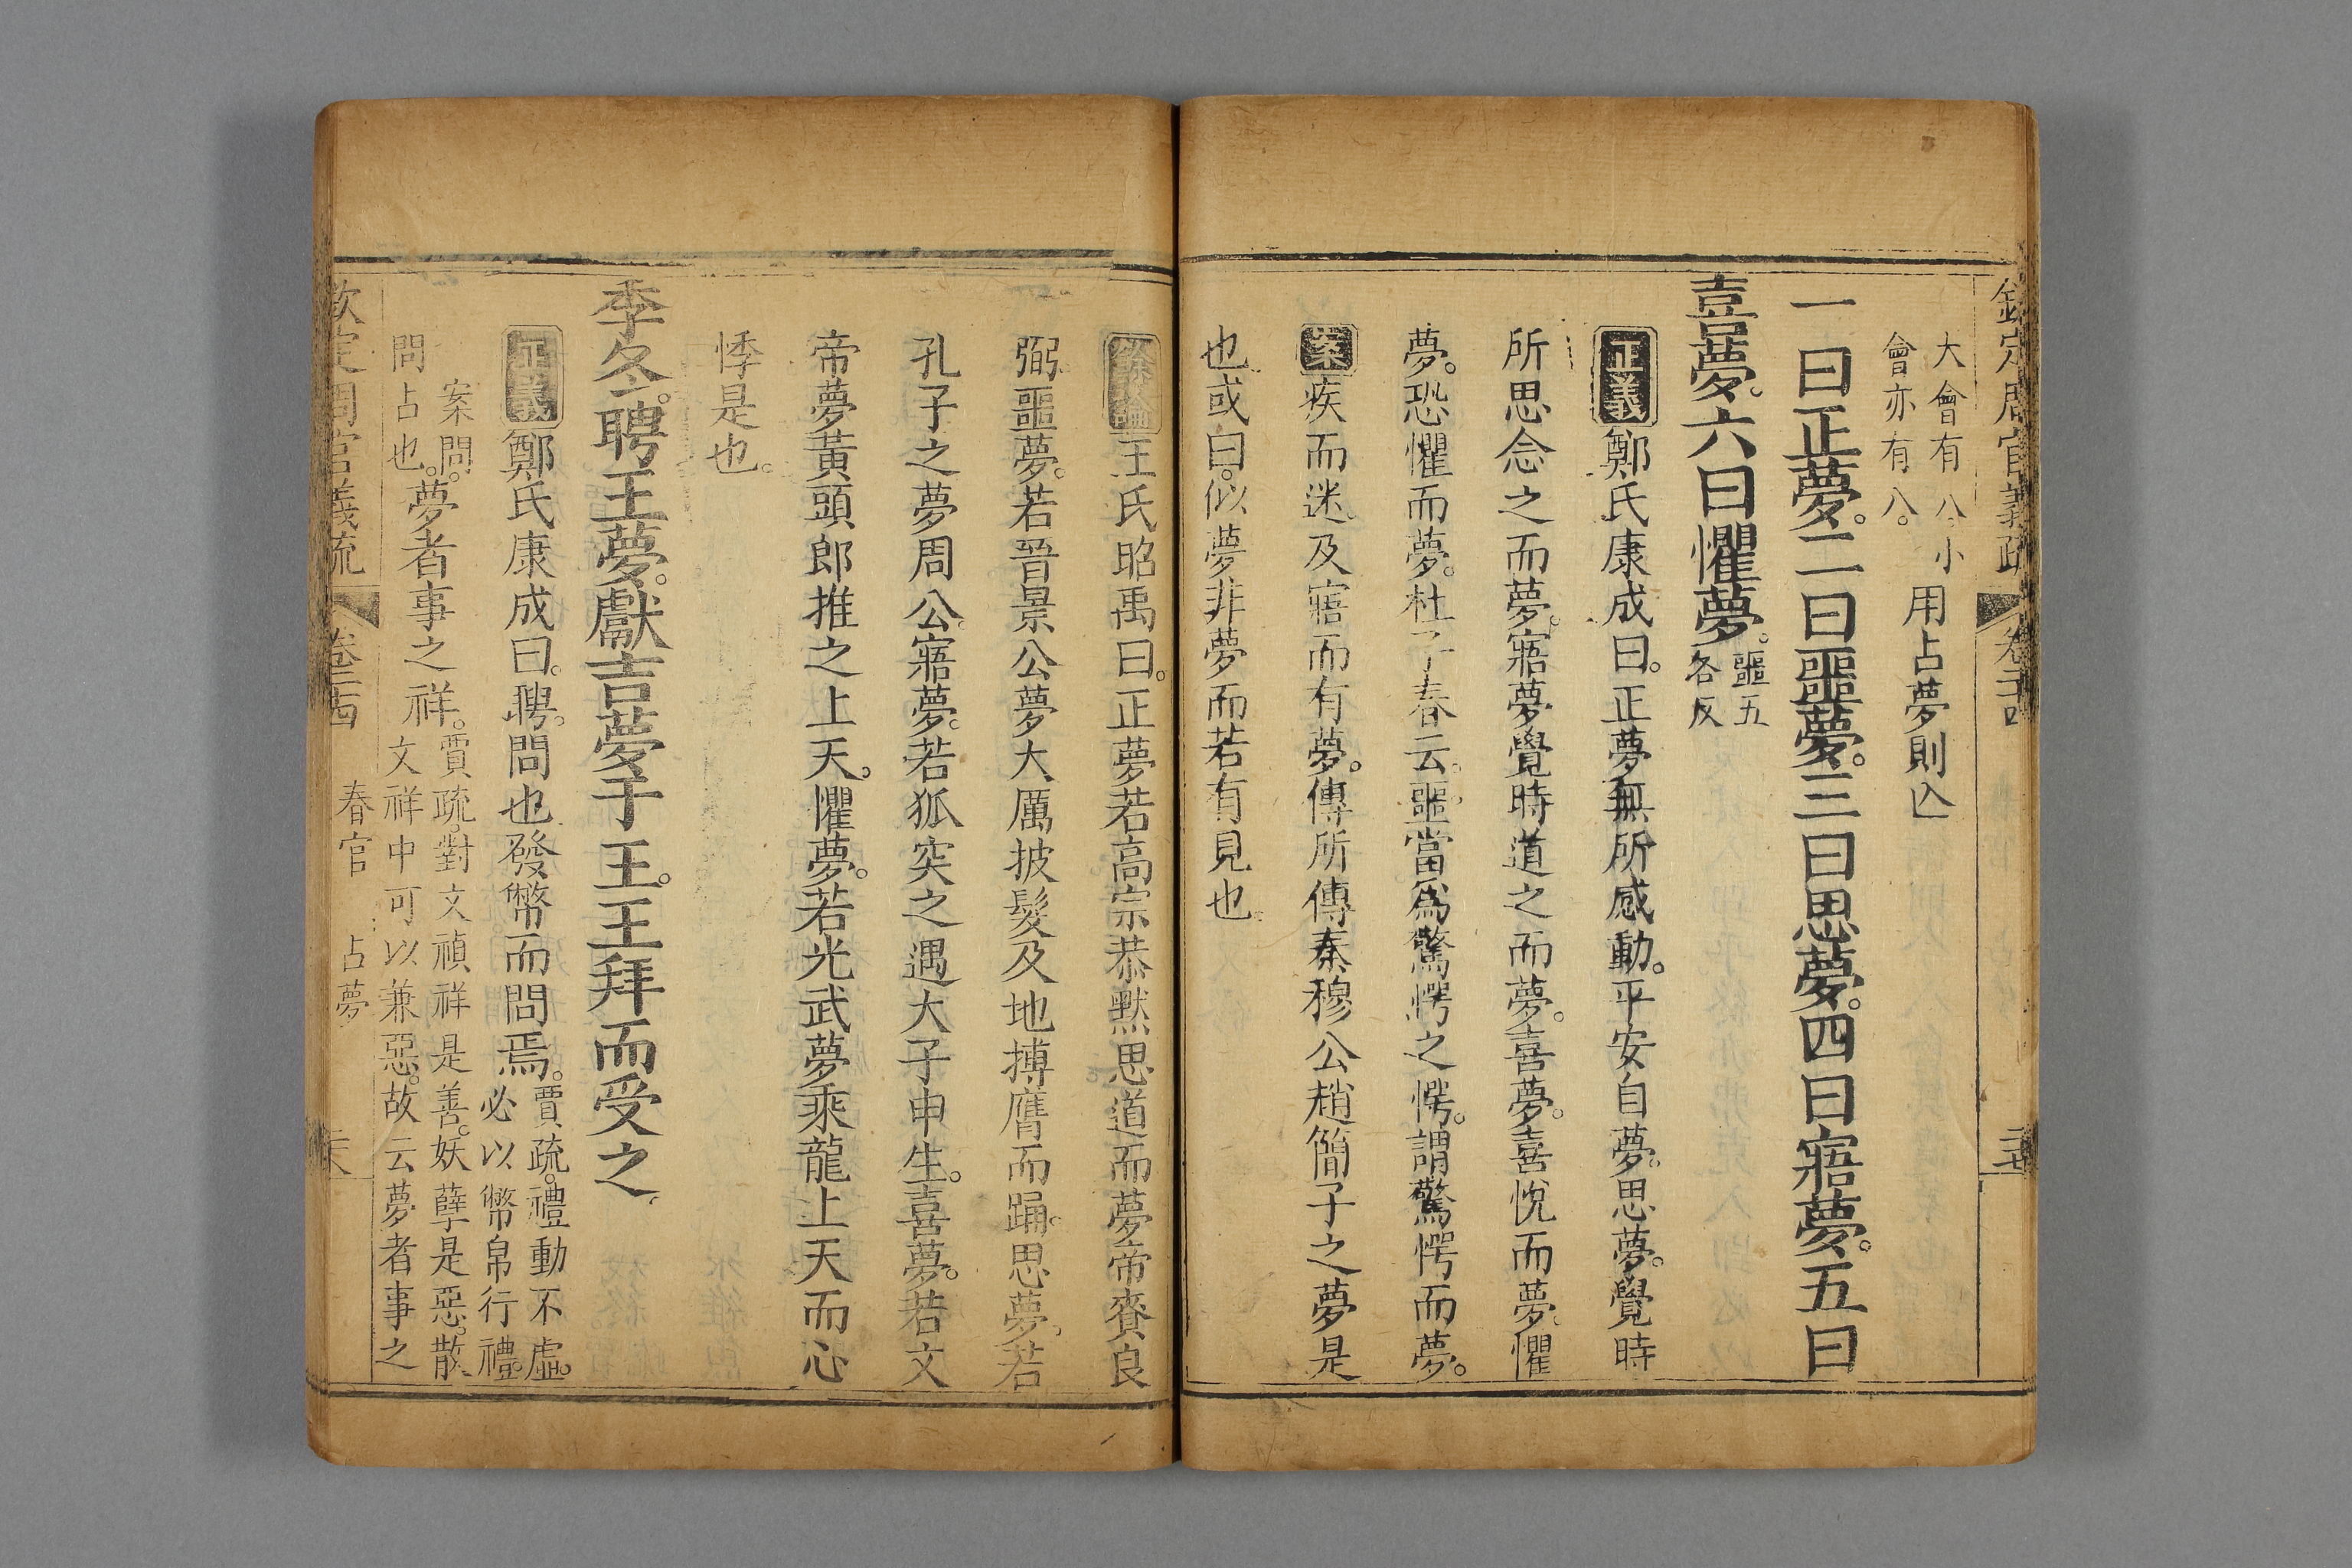 欽定周官義疏 卷二十四 二七
大會有八。小會亦有八。用占夢則亾
一曰正夢。二曰噩夢。三曰思夢。四曰寤夢。五曰
喜夢。六曰懼夢。噩五各反
正義鄭氏康成曰。正夢無所感動。平安自夢。思夢。覺時
所思念之而夢。寤夢覺時道之而夢。喜夢。喜悅而夢。懼
夢。恐懼而夢。杜子春云。噩當爲驚愕之愕。謂驚愕而夢。
案疾而迷及寤而有夢。傳所傳秦穆公趙簡子之夢是
也或曰。似夢非夢而若有見也。
餘論王氏昭禹曰。正夢若高宗恭默思道而夢帝賚良
弼噩夢。若晉景公夢大厲披髮及地搏膺而踊。思夢。若
孔子之夢周公。寤夢。若狐突之遇大子申生。喜夢。若文
帝夢黃頭郎推之上天。懼夢。若光武夢乘龍上天而心
悸是也。
季冬。聘王夢。獻吉夢于王。王拜而受之。
正義鄭氏康成曰。聘。問也發幣而問焉。賈疏。禮動不虛。必以幣帛行禮。
案問。問占也。夢者事之祥。賈疏。對文禎祥是善。妖孽是惡。散文祥中可以兼惡。故云夢者事之
欽定周官義疏 卷二十四 春官 占夢 二八